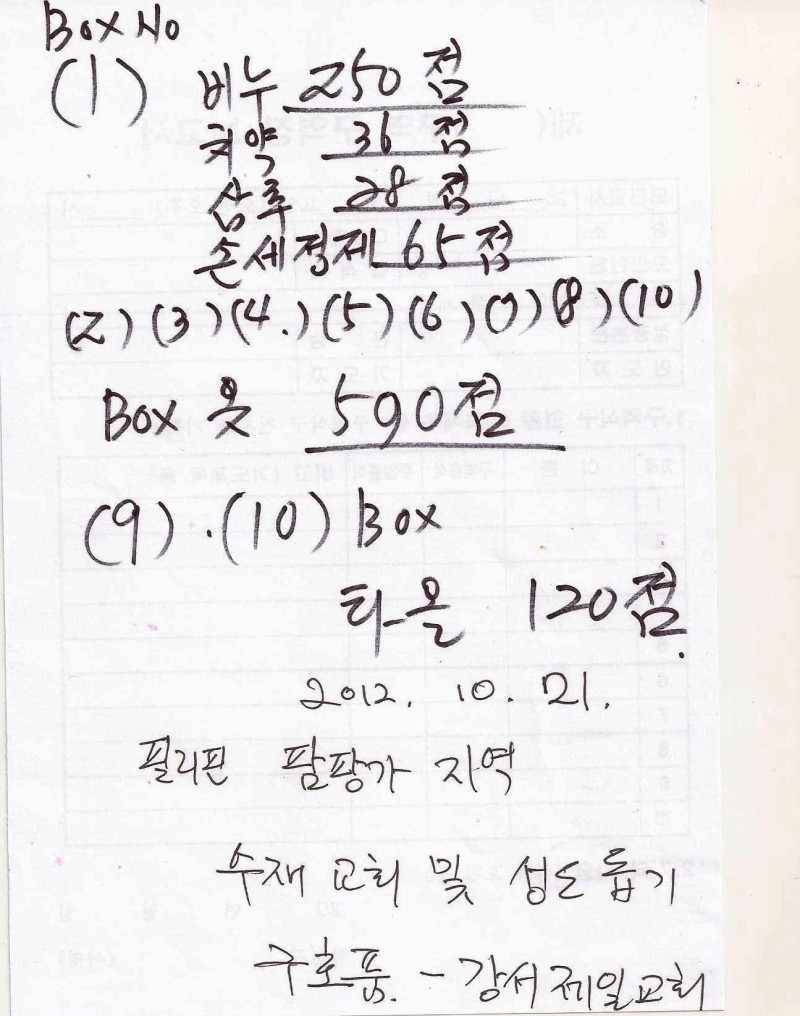 Box No
(1) 비누 250 점
치약 36 점
삼푸 28 점
손세정제 65점
(2) (3) (4.) (5) (6) (7) (8) (10)
Box 옷 590점
(9) . (10) Box
타올 120점.
2012. 10. 21.
필리핀 팜팡가 지역
수재 교회 및 성도 돕기
구호품. - 강서제일교회